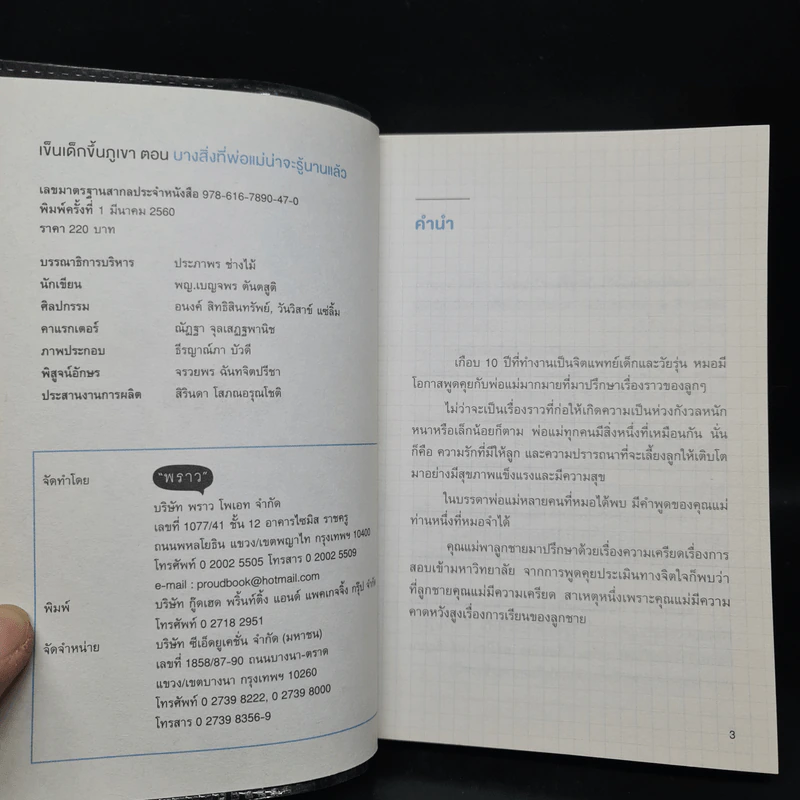 เข็นเด็กขึ้นภูเขา ตอน บางสิ่งที่พ่อแม่น่าจะรู้นานแล้ว
เลขมาตรฐานสากลประจำหนังสือ 978-616-7890-47-0
พิมพ์ครั้งที่ 1 มีนาคม 2560
ราคา 220 บาท
บรรณาธิการบริหาร ประภาพร ช่างไม้
นักเขียน พญ.เบญจพร ตันตสูติ
ศิลปกรรม อนงค์ สิทธิสินทรัพย์, วันวิสาข์ แซ่ลิ้ม
คาแรกเตอร์ ณัฏฐา จุลเสฏฐพานิช
ภาพประกอบ ธีรญาณ์ภา บัวดี
พิสูจน์อักษร จรวยพร ฉันทจิตปรีชา
ประสานงานการผลิต สิรินดา โสภณอรุณโชติ
จัดทำโดย "พราว"
บริษัท พราว โพเอท จำกัด
เลขที่ 1077/41 ชั้น 12 อาคารไซมิส ราชครู
ถนนพหลโยธิน แขวง/เขตพญาไท กรุงเทพฯ 10400
โทรศัพท์ 0 2002 5505 โทรสาร 0 2002 5509
e-mail : proudbook@hotmail.com
พิมพ์ บริษัท กู๊ดเฮด พริ้นท์ติ้ง แอนด์ แพคเกจจิ้ง กรุ๊ป จำกัด
โทรศัพท์ 0 2718 2951
จัดจำหน่าย บริษัท ซีเอ็ดยูเคชั่น จำกัด (มหาชน)
เลขที่ 1858/87-90 ถนนบางนา-ตราด
แขวง/เขตบางนา กรุงเทพฯ 10260
โทรศัพท์ 0 2739 8222, 0 2739 8000
โทรสาร 0 2739 8356-9
คำนำ
เกือบ 10 ปีที่ทำงานเป็นจิตแพทย์เด็กและวัยรุ่น หมอมี
โอกาสพูดคุยกับพ่อแม่มากมายที่มาปรึกษาเรื่องราวของลูกๆ
ไม่ว่าจะเป็นเรื่องราวที่ก่อให้เกิดความเป็นห่วงกังวลหนัก
หนาหรือเล็กน้อยก็ตาม พ่อแม่ทุกคนมีสิ่งหนึ่งที่เหมือนกัน นั่น
ก็คือ ความรักที่มีให้ลูก และความปรารถนาที่จะเลี้ยงลูกให้เติบโต
มาอย่างมีสุขภาพแข็งแรงและมีความสุข
ในบรรดาพ่อแม่หลายคนที่หมอได้พบ มีคำพูดของคุณแม่
ท่านหนึ่งที่หมอจำได้
คุณแม่พาลูกชายมาปรึกษาด้วยเรื่องความเครียดเรื่องการ
สอบเข้ามหาวิทยาลัย จากการพูดคุยประเมินทางจิตใจก็พบว่า
ที่ลูกชายคุณแม่มีความเครียด สาเหตุหนึ่งเพราะคุณแม่มีความ
คาดหวังสูงเรื่องการเรียนของลูกชาย
3